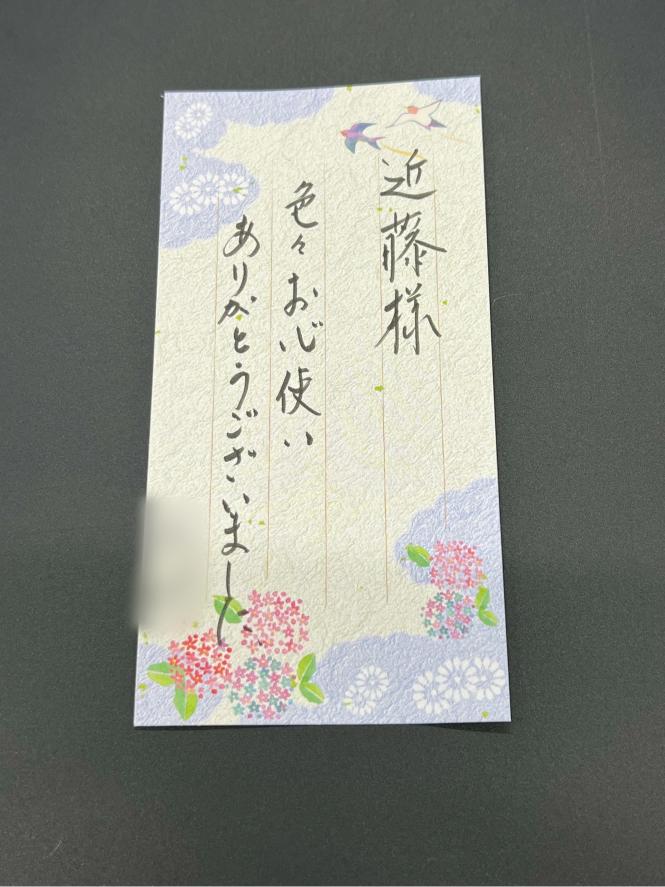 近藤様
色々お心使い
ありがとうございました